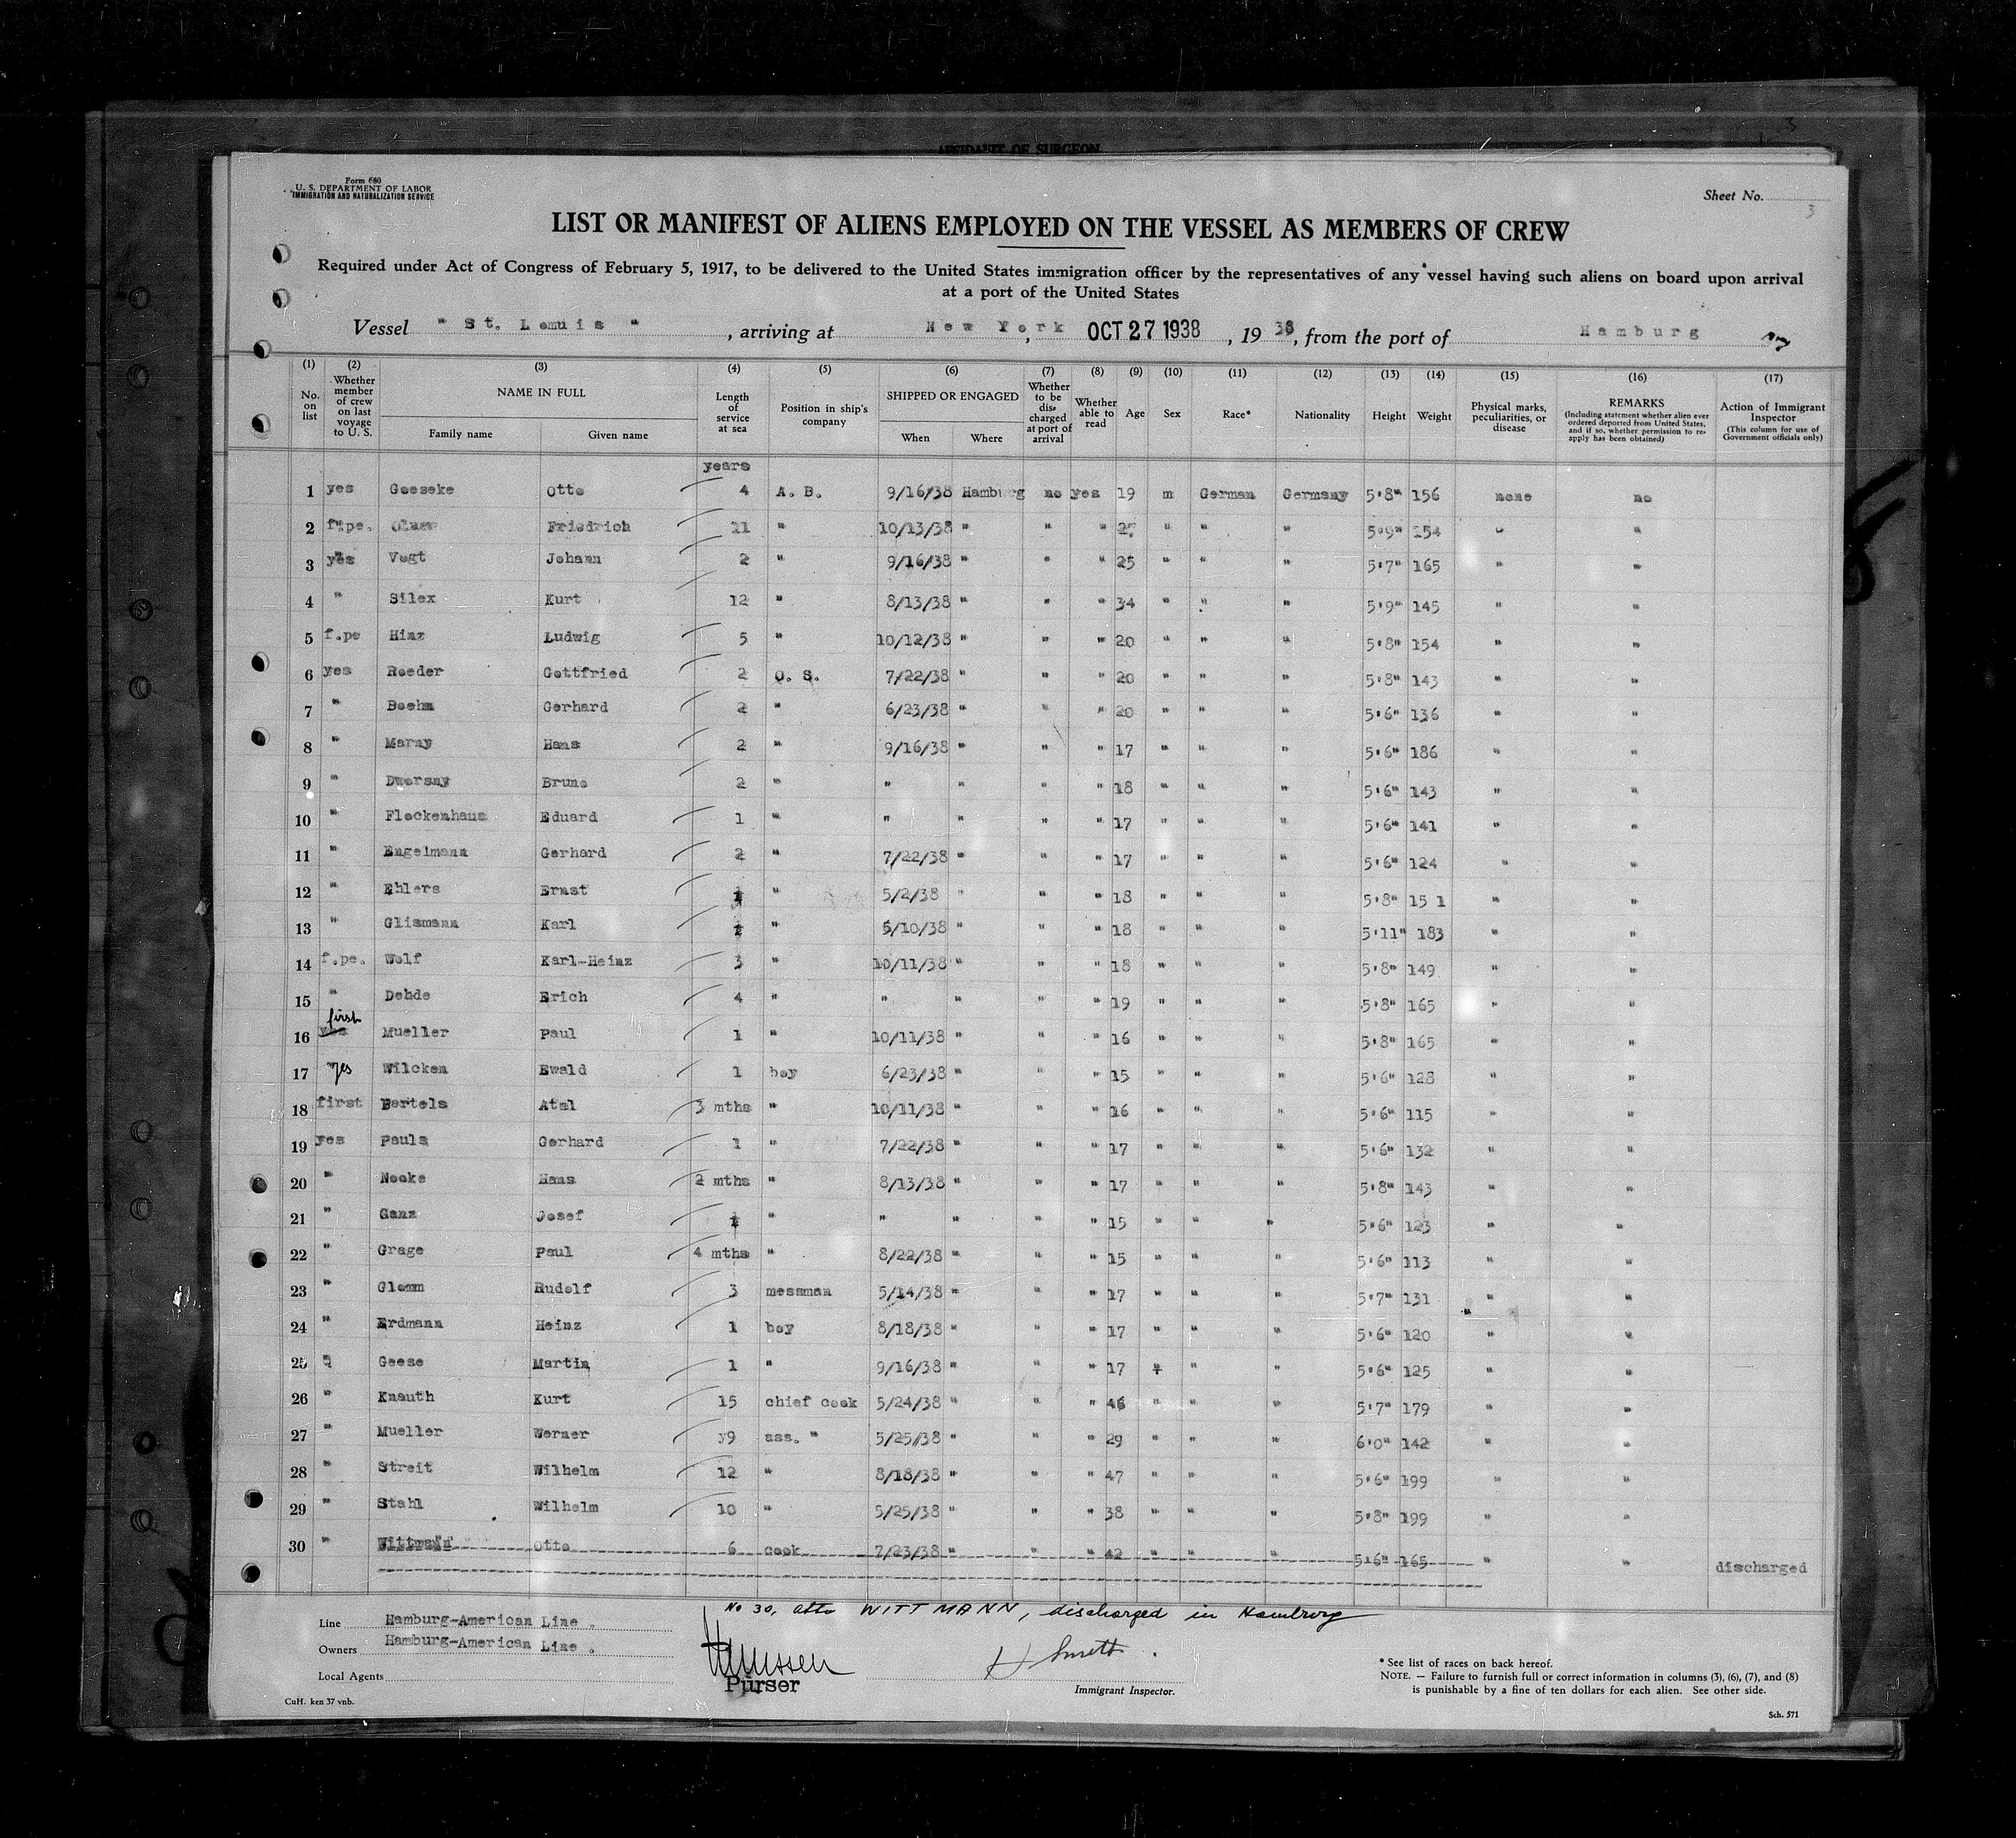 AFFIDAVIT OF SURGEON
3
Form 680
U. S. DEPARTMENT OF LABOR
IMMIGRATION AND NATURALIZATION SERVICE
Sheet No.
3
LIST OR MANIFEST OF ALIENS EMPLOYED ON THE VESSEL AS MEMBERS OF CREW
Required under Act of Congress of February 5, 1917, to be delivered to the United States immigration officer by the representatives of any vessel having such aliens on board upon arrival
at a port of the United States
Vessel " St. Lomuis " , arriving at New York , OCT 27 1938 , 19 38, from the port of Hamburg
(1) (2) (3) (4) (5) (6) (7) (8) (9) (10) (11) (12) (13) (14) (15) (16) (17)
No. on list
Whether member of crew on last voyage to U. S.
NAME IN FULL
Family name Given name
Length of service at sea
Position in ship's company
SHIPPED OR ENGAGED
When Where
Whether to be discharged at port of arrival
Whether able to read
Age
Sex
Race*
Nationality
Height
Weight
Physical marks, peculiarities, or disease
REMARKS
(Including statement whether alien ever ordered deported from United States, and if so, whether permission to re-apply has been obtained)
Action of Immigrant Inspector
(This column for use of Government officials only)
years
1 yes Geeseke Otto 4 A. B. 9/16/38 Hamburg no yes 19 m German Germany 5'8" 156 none no
2 f.pe. Friedrich 11 " 10/13/38 " " " " " " 5'9" 154 " "
3 yes Vogt Johann 2 " 9/16/38 " " " 25 " " " 5'7" 165 " "
4 " Silex Kurt 12 " 8/13/38 " " " 34 " " " 5'9" 145 " "
5 f.pe Hinz Ludwig 5 " 10/12/38 " " " 20 " " " 5'8" 154 " "
6 yes Roeder Gottfried 2 O. S. 7/22/38 " " " 20 " " " 5'8" 143 " "
7 " Boehm Gerhard 2 " 6/23/38 " " " 20 " " " 5'6" 136 " "
8 " Marny Hans 2 " 9/16/38 " " " 17 " " " 5'6" 186 " "
9 " Dworsny Bruno 2 " " " " " 18 " " " 5'6" 143 " "
10 " Flockenhaus Eduard 1 " " " " " 17 " " " 5'6" 141 " "
11 " Engelmann Gerhard 2 " 7/22/38 " " " 17 " " " 5'6" 124 " "
12 " Ehlers Ernst 1 " 5/2/38 " " " 18 " " " 5'8" 15 1 " "
13 " Glismann Karl 1 " 5/10/38 " " " 18 " " " 5'11" 183 " "
14 f.pe. Wolf Karl-Heinz 3 " 10/11/38 " " " 18 " " " 5'8" 149 " "
15 " Dehde Erich 4 " " " " " 19 " " " 5'8" 165 " "
first
16 yes Mueller Paul 1 " 10/11/38 " " " 16 " " " 5'8" 165 " "
17 yes Wilcken Ewald 1 boy 6/23/38 " " " 15 " " " 5'6" 128 " "
18 first Bertels 3 mths " 10/11/38 " " " 16 " " " 5'6" 115 " "
19 yes Pauls Gerhard 1 " 7/22/38 " " " 17 " " " 5'6" 132 " "
20 " Nooke Hans 2 mths " 8/13/38 " " " 17 " " " 5'8" 143 " "
21 " Ganz Josef 1 " " " " " 15 " " " 5'6" 123 " "
22 " Grage Paul 4 mths " 8/22/38 " " " 15 " " " 5'6" 113 " "
23 " Gloam Rudolf 3 messman 5/14/38 " " " 17 " " " 5'7" 131 " "
24 " Erdmann Heinz 1 boy 8/18/38 " " " 17 " " " 5'6" 120 " "
25 " Geese Martin 1 " 9/16/38 " " " 17 " " " 5'6" 125 " "
26 " Knauth Kurt 15 chief cook 5/24/38 " " " 46 " " " 5'7" 179 " "
27 " Mueller Werner y9 ass. " 5/25/38 " " " 29 " " " 6'0" 142 " "
28 " Streit Wilhelm 12 " 8/18/38 " " " 47 " " " 5'6" 199 " "
29 " Stahl Wilhelm 10 " 5/25/38 " " " 38 " " " 5'8" 199 " "
30 " Wittmann Otto 6 cook 7/23/38 " " " 42 " " " 5'6" 165 " " discharged
No 30, Otto WITTMANN, discharged in Hamburg
Line Hamburg-American Line .
Owners Hamburg-American Line .
Local Agents
Purser
Immigrant Inspector.
* See list of races on back hereof.
NOTE. — Failure to furnish full or correct information in columns (3), (6), (7), and (8)
is punishable by a fine of ten dollars for each alien. See other side.
CuH. ken 37 vnb.
Sch. 571